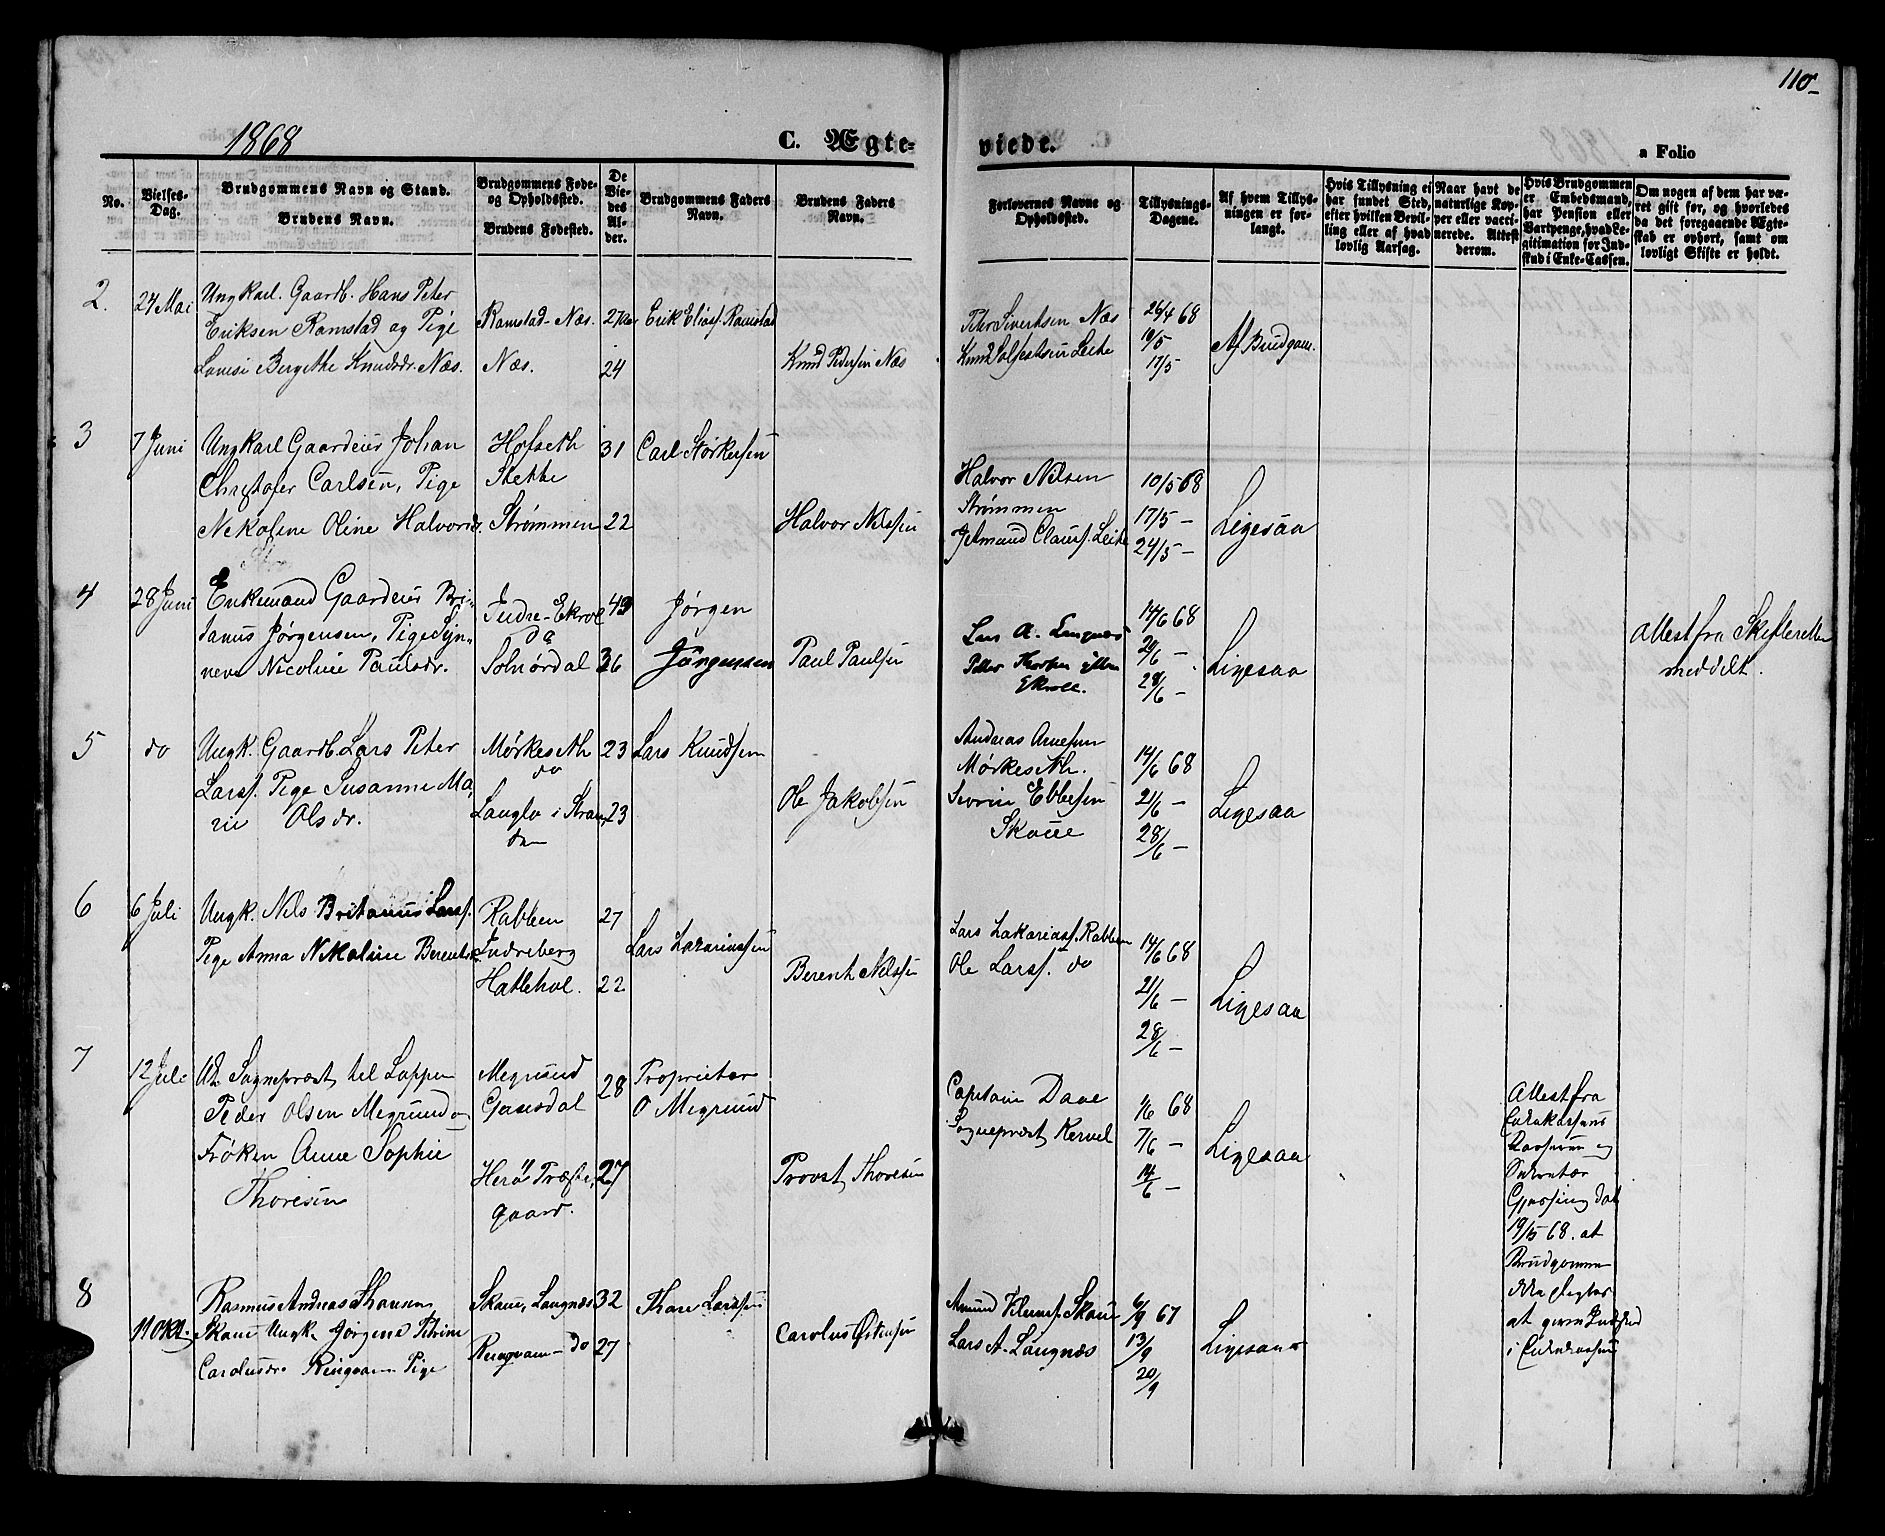 110
1868
C. Ægte-
viede.
a Folio
No.
Vielses-
Dag.
Brudgommens Navn og Stand.
Brudens Navn.
Brudgommens Føde-
og Opholdssted.
Brudens Fødested.
De
Vie-
des
Al-
der.
Brudgommens Faders
Navn.
Brudens Faders
Navn.
Forlovernes Navne og
Opholdssted.
Tillysnings-
Dagene.
Af hvem Tillys-
ningen er for-
langt.
Hvis Tillysning ei
har fundet Sted,
efter hvilken Bevil-
ling eller af hvad
lovlig Aarsag.
Naar havt de
naturlige Kop-
per eller vacci-
nerede. Attest
derom.
Hvis Brudgommen
er Embedsmand,
har Pension eller
Vartpenge, hvad Le-
gitimation for Ind-
skud i Enke-Cassen.
Om nogen af dem har væ-
ret gift før, og hvorledes
da det foregaaende Ægte-
skab er ophørt, samt om
lovligt Skifte er holdt.
2.
24 Mai
Ungkarl. Gaardb. Hans Peter
Eriksen Ramstad og Pige
Lovise Bergithe Knudsdr. Næs.
Ramstad - Næs.
Næs.
24
Erik Eliass. Ramstad
Knud Pedersen Næs
Peter Sivertsen Næs
26/4 68
10/5
17/5
Af Brudgom.
3
7 Juni
Ungkarl Gaardeier Johan
Christofer Carlsen, Pige
Nekoline Oline Halvorsdr.
Hofseth
Stette
Strømmen
31
22
Carl Størkersen
Halvor Nilssen
Halvor Nilsen
Strømmen
Jetmund Clauss. Leite
10/5 68
17/5 -
24/5 -
Ligesaa
4
28 Juni
Enkemand Gaardeier Bri-
tanus Jørgensen, Pige Syn-
neve Nicoline Paulsdr.
Indre-Ekrol
Solnørdal
49
36
Jørgen
Jørgensen
Paul Paulsen
Lars A. Langnæs
Petter
Ekroll.
14/6 68
21/6 -
28/6 -
Ligesaa
Attest fra Skifteretten
meddelt.
5
do
Ungk. Gaardb. Lars Peter
Larss. Pige Susanne Ma-
rie Olsdr.
Mørkeseth
do
Langlo i Stran-
den
23
23
Lars Knudssen
Ole Jakobsen
Andreas Arnesen
Mørkeseth.
Severin Ebbesen
Skoue
14/6 68
21/6 -
28/6 -
Ligesaa
6
6 Juli
Ungk. Nils Britanus Larss.
Pige Anna Nekoline Berentsdr.
Rabben
Indreberg
Hattehol.
27
22
Lars Lazariassen
Berent Nilssen
Lars Lakariass. Rabben
Ole Larss. do
14/6 68
21/6 -
28/6 -
Ligesaa
7
12 Juli
Sogneprest til Loppen
Peder Olsen Megrund og
Frøken Anne Sophie
Thoresen
Megrund
Gausdal
Herø Præste-
gaard.
28
27
Proprietær
O Megrund
Provst Thoresen
Capitain Daae
Sogneprest
1/6 68
7/6 -
14/6 -
Ligesaa
Attest fra
Enkekassens
og
Sekretær
dat
19/5 68. at
Brudgommen
at gjøre Indskud
i Enkekassen
8
11 Okt.
Rasmus Andreas Thoresen
Skoue Ungk. Jørgine Petrine
Carolusdr. Ringvam Pige
Skoue, Langnæs
Ringvam - do
32
27
Thore Larssen
Carolus Østensen
Amund Skoue
Lars A. Langnæs
6/9 67
13/9
20/9
Ligesaa